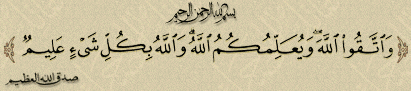 بسم الله الرحمن الرحيم
﴿ وَٱتَّقُوا۟ ٱللَّهَ ۖ وَيُعَلِّمُكُمُ ٱللَّهُ ۗ وَٱللَّهُ بِكُلِّ شَىْءٍ عَلِيمٌ ﴾
صدق الله العظيم